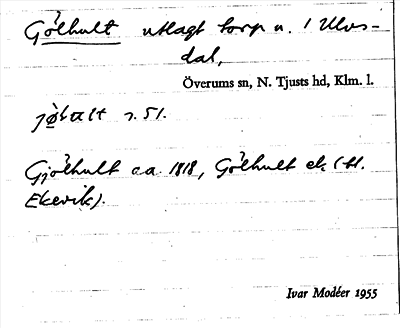 Gölhult utlagt torp u. 1 Ulvs-
dal,
Överums sn, N. Tjusts hd, Klm. l.
s. 51.
Gjölhult a.a. 1818, Gölhult ek (H.
Ekevik).
Ivar Modéer 1955